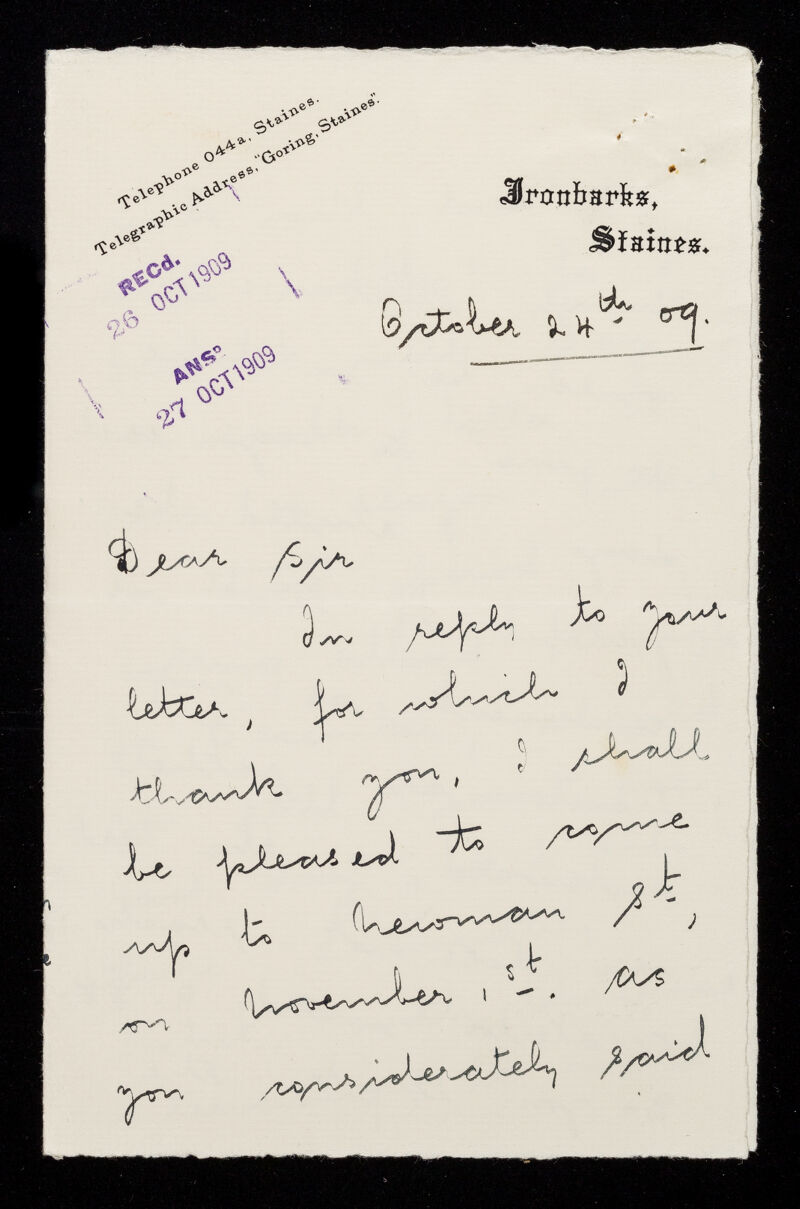 Telephone 044a, Staines.
Telegraphic Address, "Goring, Staines".
Ironbarks,
Staines.
RECd.
26 OCT 1909
ANSD
27 OCT 1909
October 24th 09.
Dear Sir
In reply to your
letter, for which I
thank you, I shall
be pleased to come
up to Newman St,
on November 1st. as
you considerately said